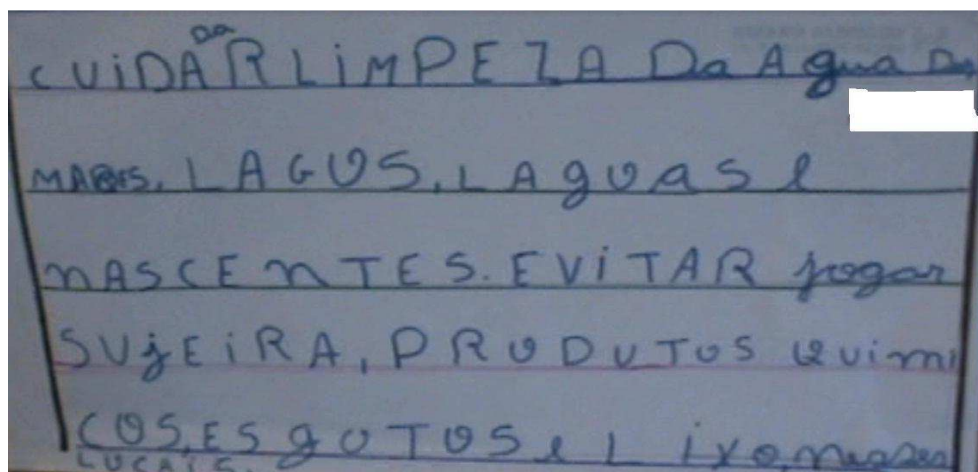 CUIDAR DA LIMPEZA Da Agua Do
MARES, LAGOS, LAgoas e
nASCEnTES. EVITAR jogar
SUjEIRA, PRODUTOS Quimi
COS, ESgOTOS e Lixo nesses
LUCAIS.